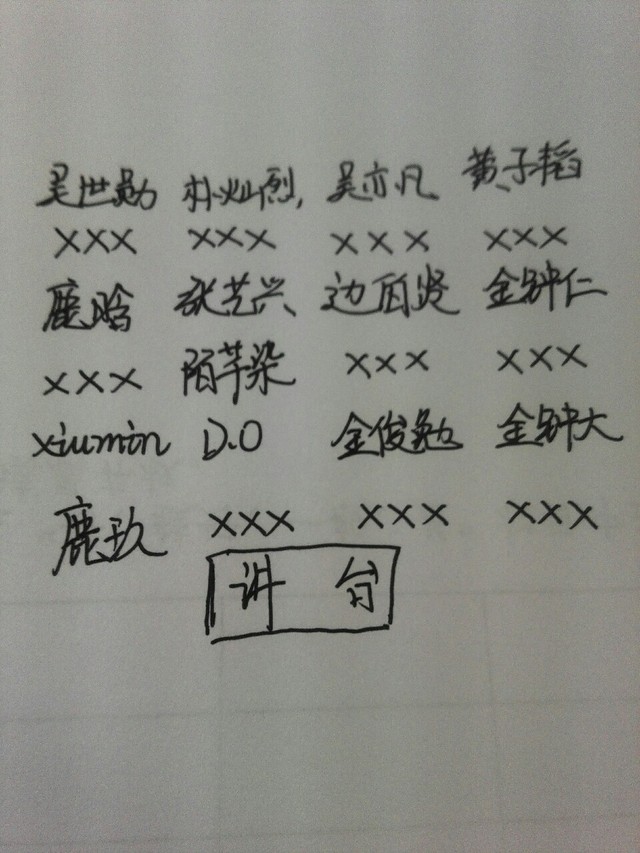 吴世勋 朴灿烈, 吴亦凡 黄子韬
××× ××× ××× ×××
鹿晗 张艺兴 边伯贤 金钟仁
××× 陌芊染 ××× ×××
xiumin D.O 金俊勉 金钟大
鹿玖 ××× ××× ×××
讲 台